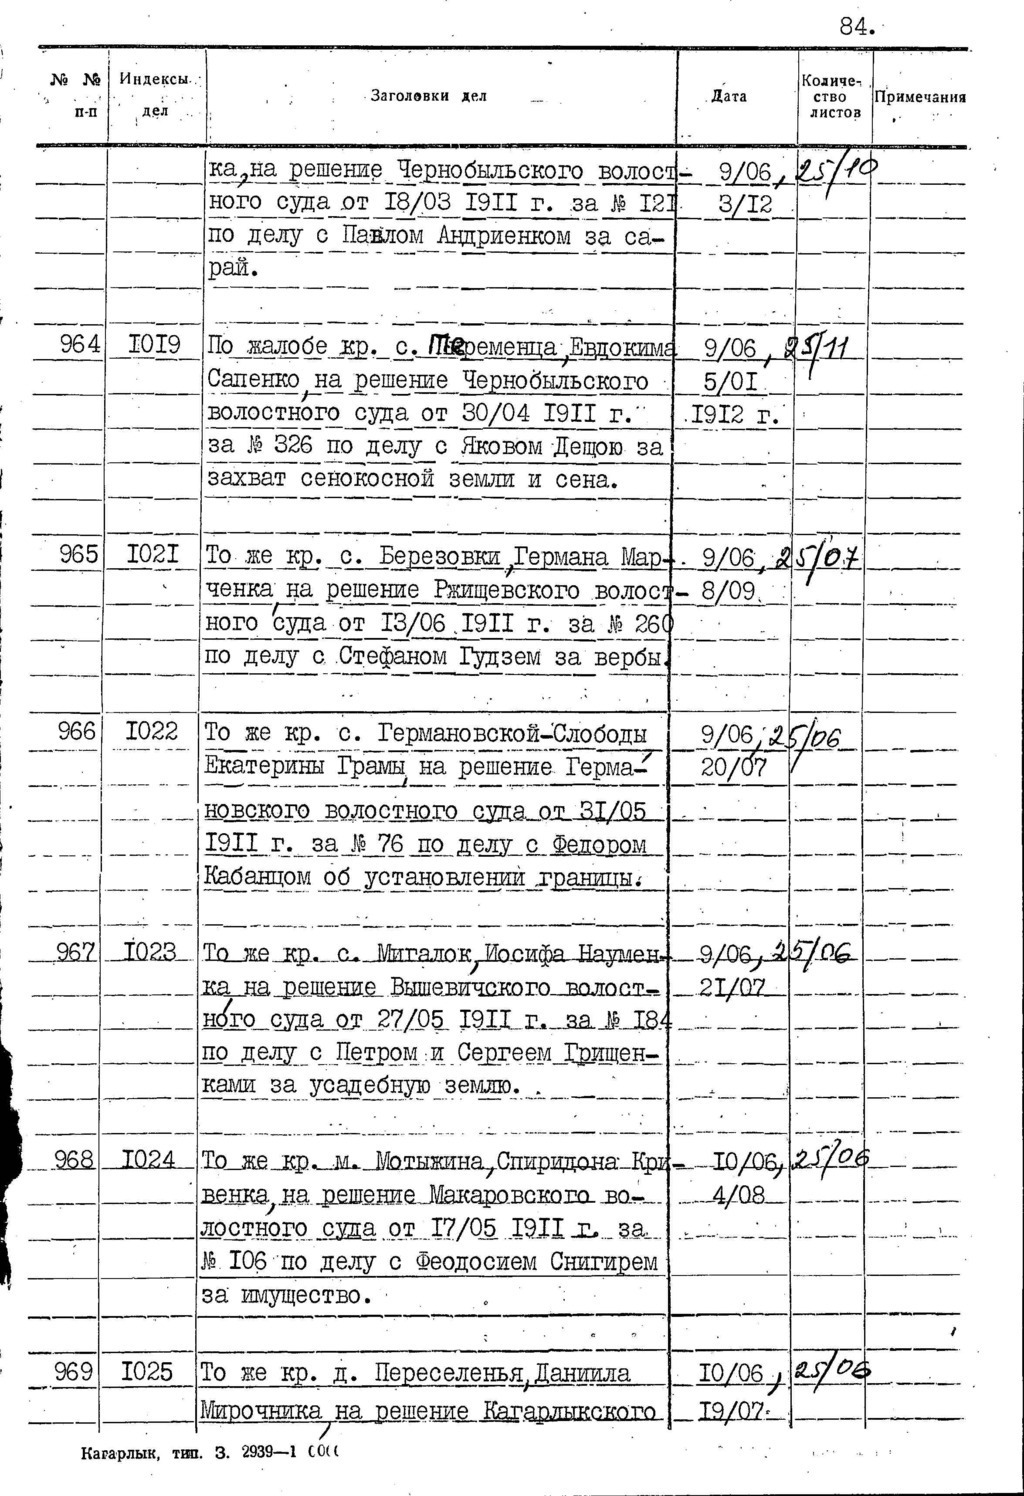 84.
№ № п-п | Индексы дел | Заголовки дел | Дата | Количество листов | Примечания
ка,на решение Чернобыльского волост- | 9/06, | 25/10
ного суда от 18/03 1911 г. за № 121 | 3/12
по делу с Павлом Андриенком за са-
рай.
964 | 1019 | По жалобе кр. с. Теременца,Евдокима | 9/06, | 25/11
Сапенко,на решение Чернобыльского | 5/01
волостного суда от 30/04 1911 г. | 1912 г.
за № 326 по делу с Яковом Дещою за
захват сенокосной земли и сена.
965 | 1021 | То же кр. с. Березовки,Германа Мар- | 9/06, | 25/07
ченка,на решение Ржищевского волост- | 8/09
ного суда от 13/06 1911 г. за № 260
по делу с Стефаном Гудзем за вербы.
966 | 1022 | То же кр. с. Германовской-Слободы | 9/06, | 25/06
Екатерины Грамы,на решение Герма- | 20/07
новского волостного суда от 31/05
1911 г. за № 76 по делу с Федором
Кабанцом об установлений границы.
967 | 1023 | То же кр. с. Мигалок,Иосифа Наумен- | 9/06, | 25/06
ка,на решение Вышевичского волост- | 21/07
ного суда от 27/05 1911 г. за № 184
по делу с Петром и Сергеем Грищен-
ками за усадебную землю.
968 | 1024 | То же кр. м. Мотыжина,Спиридона Кри- | 10/06, | 25/06
венка,на решение Макаровского во- | 4/08
лостного суда от 17/05 1911 г. за
№ 106 по делу с Феодосием Снигирем
за имущество.
969 | 1025 | То же кр. д. Переселенья,Даниила | 10/06, | 25/06
Мирочника,на решение Кагарлыкского | 19/07
Кагарлык, тип. З. 2939—1 000